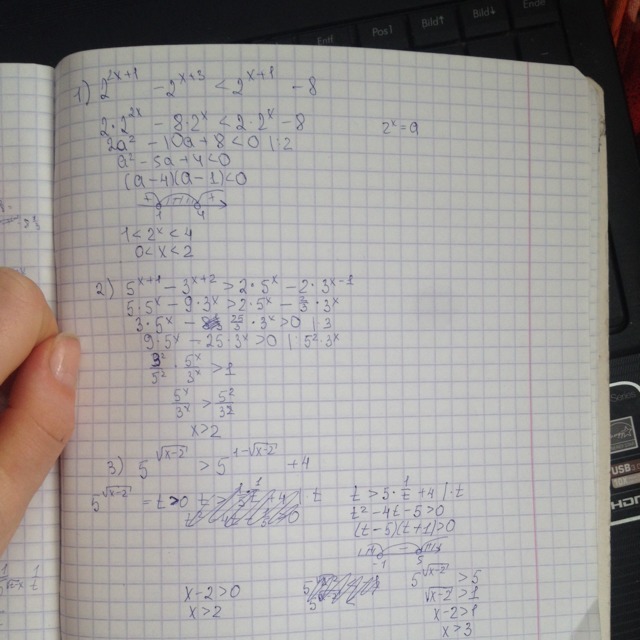 Entf Pos1 Bild↑ Bild↓ Ende
1) 2^{2x+1} - 2^{x+3} < 2^{x+1} - 8
2·2^{2x} - 8·2^x < 2·2^x - 8
2^x = a
2a² - 10a + 8 < 0 |:2
a² - 5a + 4 < 0
(a-4)(a-1) < 0
1 4
1 < 2^x < 4
0 < x < 2
2) 5^{x+1} - 3^{x+2} > 2·5^x - 2·3^{x-1}
5·5^x - 9·3^x > 2·5^x - 2/3·3^x
3·5^x - 25/3·3^x > 0 |·3
9·5^x - 25·3^x > 0 |:5²·3^x
3²/5² · 5^x/3^x > 1
5^x/3^x > 5²/3²
x > 2
3) 5^{√(x-2)} > 5^{1-√(x-2)} + 4
5^{√(x-2)} = t > 0
t > 5·1/t + 4 |·t
t² - 4t - 5 > 0
(t-5)(t+1) > 0
-1 5
x - 2 > 0
x > 2
5^{√(x-2)} > 5
√(x-2) > 1
x - 2 > 1
x > 3
USB
HDMI